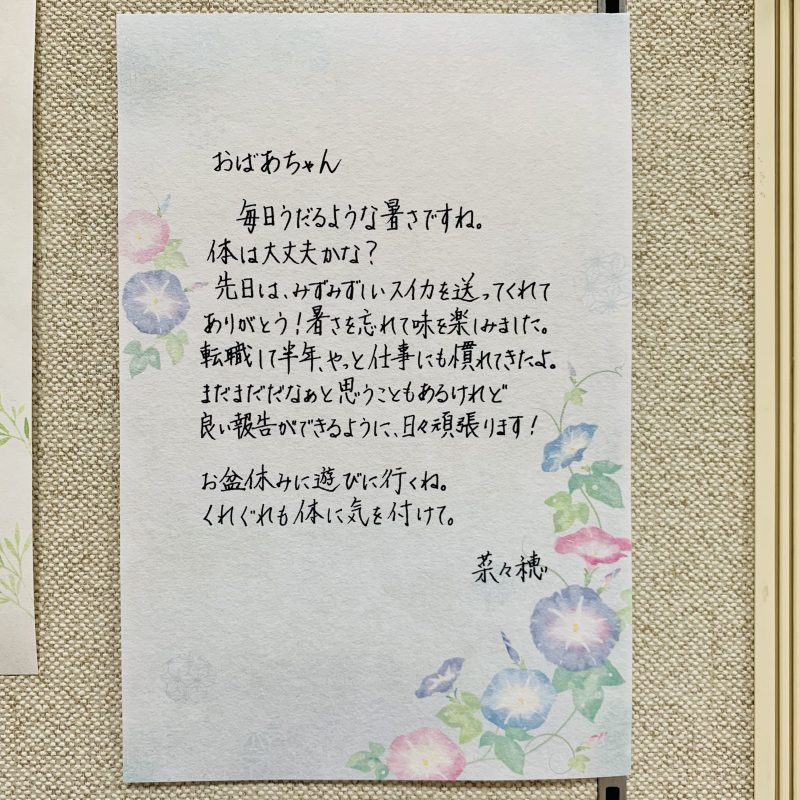 おばあちゃん
毎日うだるような暑さですね。
体は大丈夫かな?
先日は、みずみずしいスイカを送ってくれて
ありがとう!暑さを忘れて味を楽しみました。
転職して半年、やっと仕事にも慣れてきたよ。
まだまだだなぁと思うこともあるけれど
良い報告ができるように、日々頑張ります!
お盆休みに遊びに行くね。
くれぐれも体に気を付けて。
菜々穂